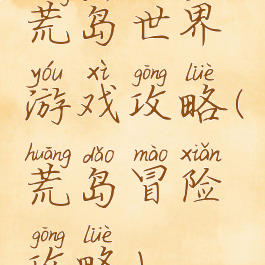 荒岛世界
yóu xì gōng lüè
游戏攻略(
huāng dǎo mào xiǎn
荒岛冒险
gōng lüè
攻略)